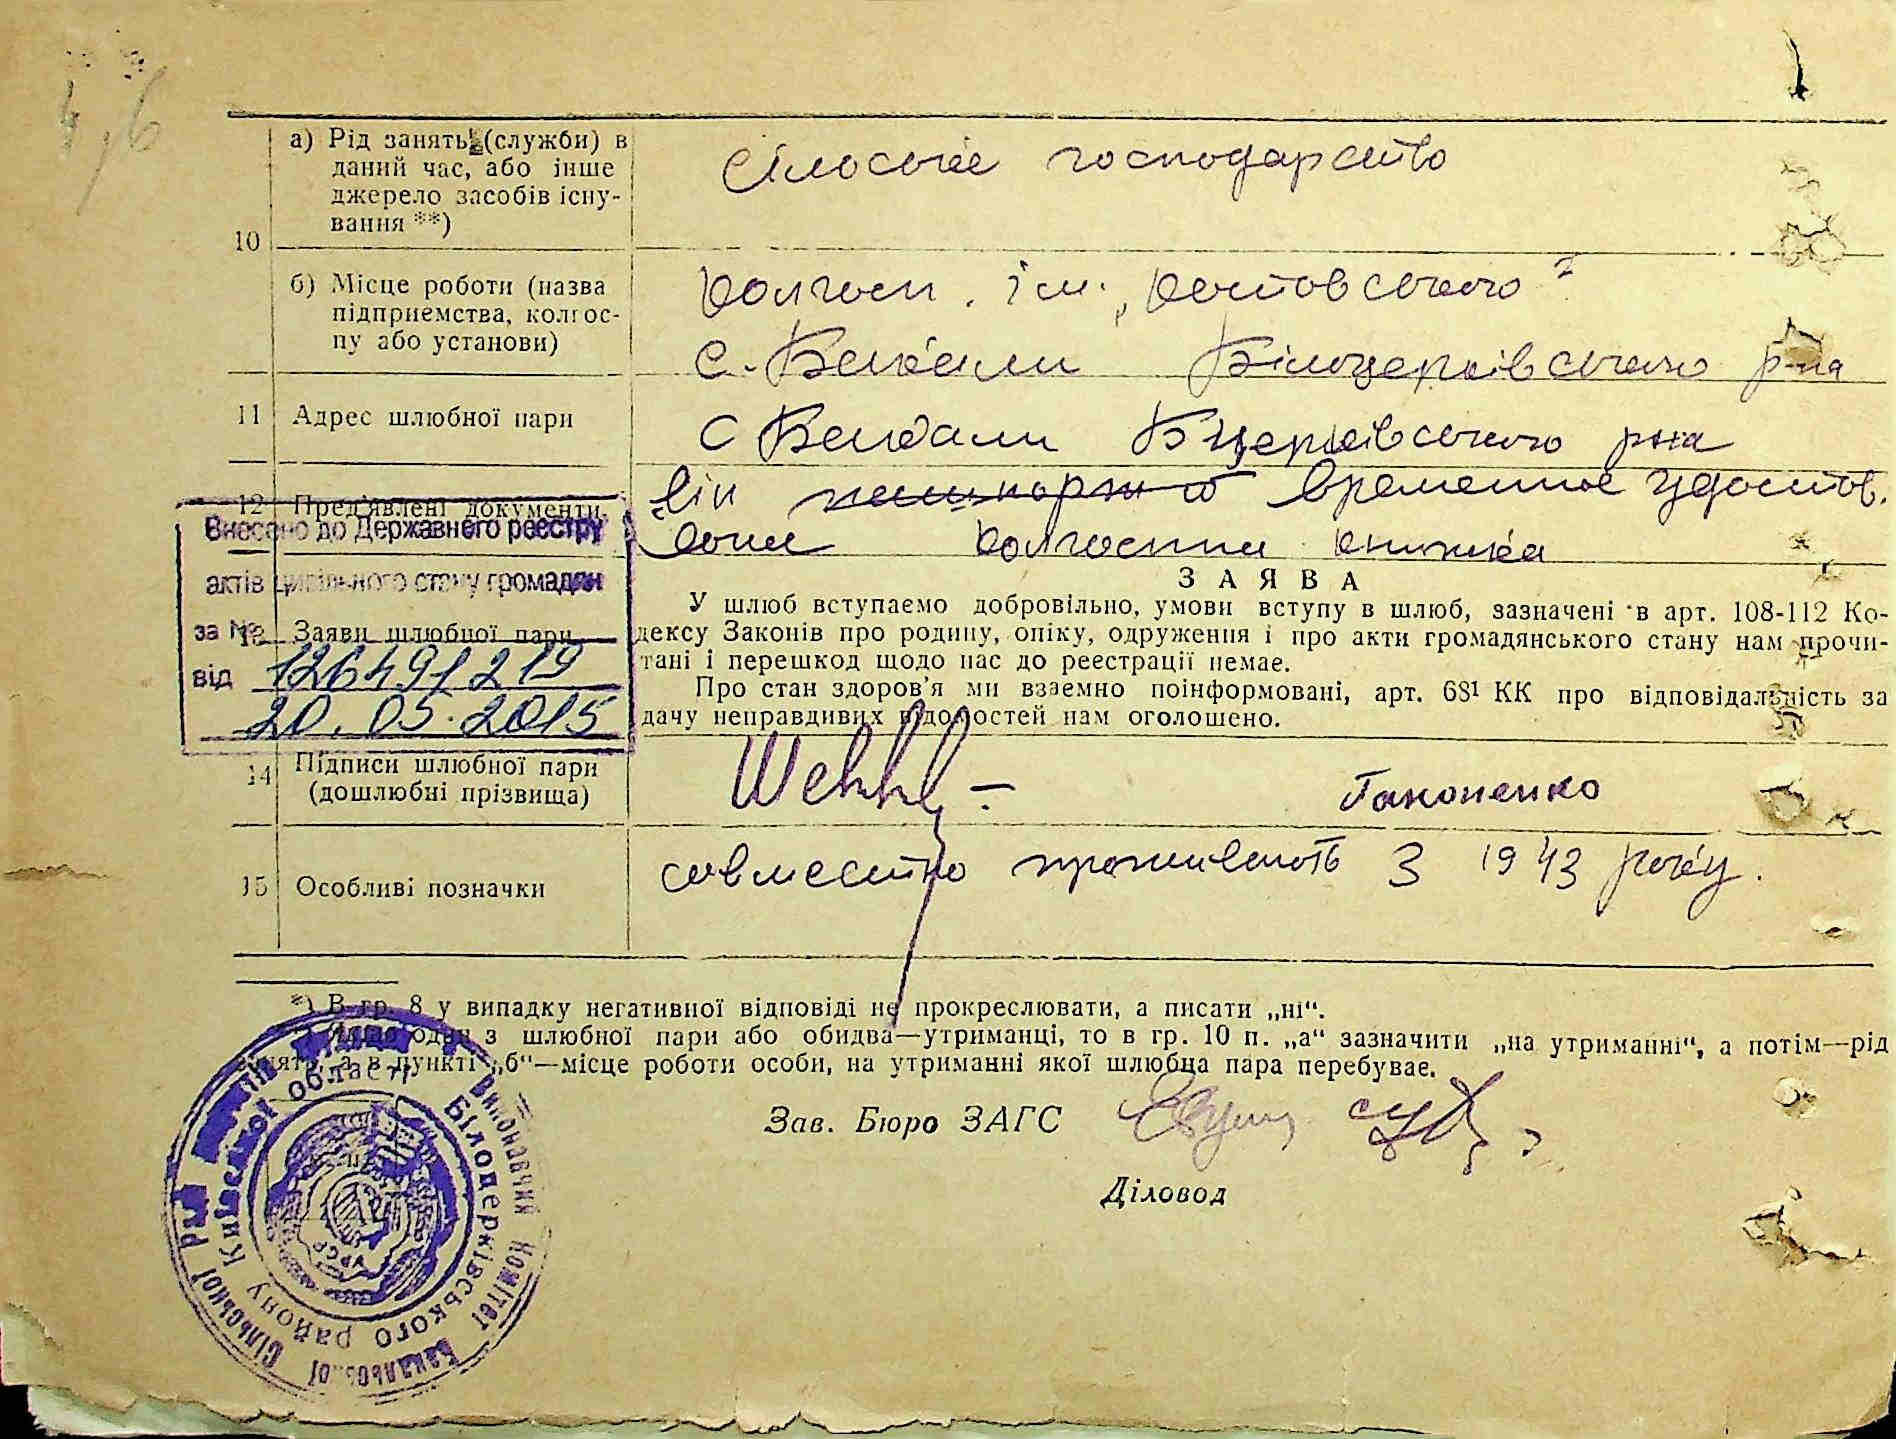 4,6
а) Рід занять (служби) в
даний час, або інше
джерело засобів існу-
вання **)
10
господарство
б) Місце роботи (назва
підприємства, колгос-
пу або установи)
колгосп. Ім.
с. Бикали Білоцерківського р-на
11 Адрес шлюбної пари
с Бикали Бцерківського рна
12 Пред'явлені документи
він паспорт временное удостов.
вона колгоспна книжка
Внесено до Державного реєстру
актів цивільного стану громадян
за №
від 126491219
20.05.2015
13 Заяви шлюбної пари
ЗАЯВА
У шлюб вступаємо добровільно, умови вступу в шлюб, зазначені в арт. 108-112 Ко-
дексу Законів про родину, опіку, одруження і про акти громадянського стану нам прочи-
тані і перешкод щодо нас до реєстрації немає.
Про стан здоров'я ми взаємно поінформовані, арт. 68¹ КК про відповідальність за
дачу неправдивих відомостей нам оголошено.
14 Підписи шлюбної пари
(дошлюбні прізвища)
Гапоненко
15 Особливі позначки
совместно проживають З 1943 року.
*) В гр. 8 у випадку негативної відповіді не прокреслювати, а писати „ні“.
Якщо один з шлюбної пари або обидва—утриманці, то в гр. 10 п. „а“ зазначити „на утриманні“, а потім—рід
занять, а в пункті „б“—місце роботи особи, на утриманні якої шлюбна пара перебуває.
Зав. Бюро ЗАГС
Діловод
Виконавчий Комітет сільської
Білоцерківського району Київської області
УРСР